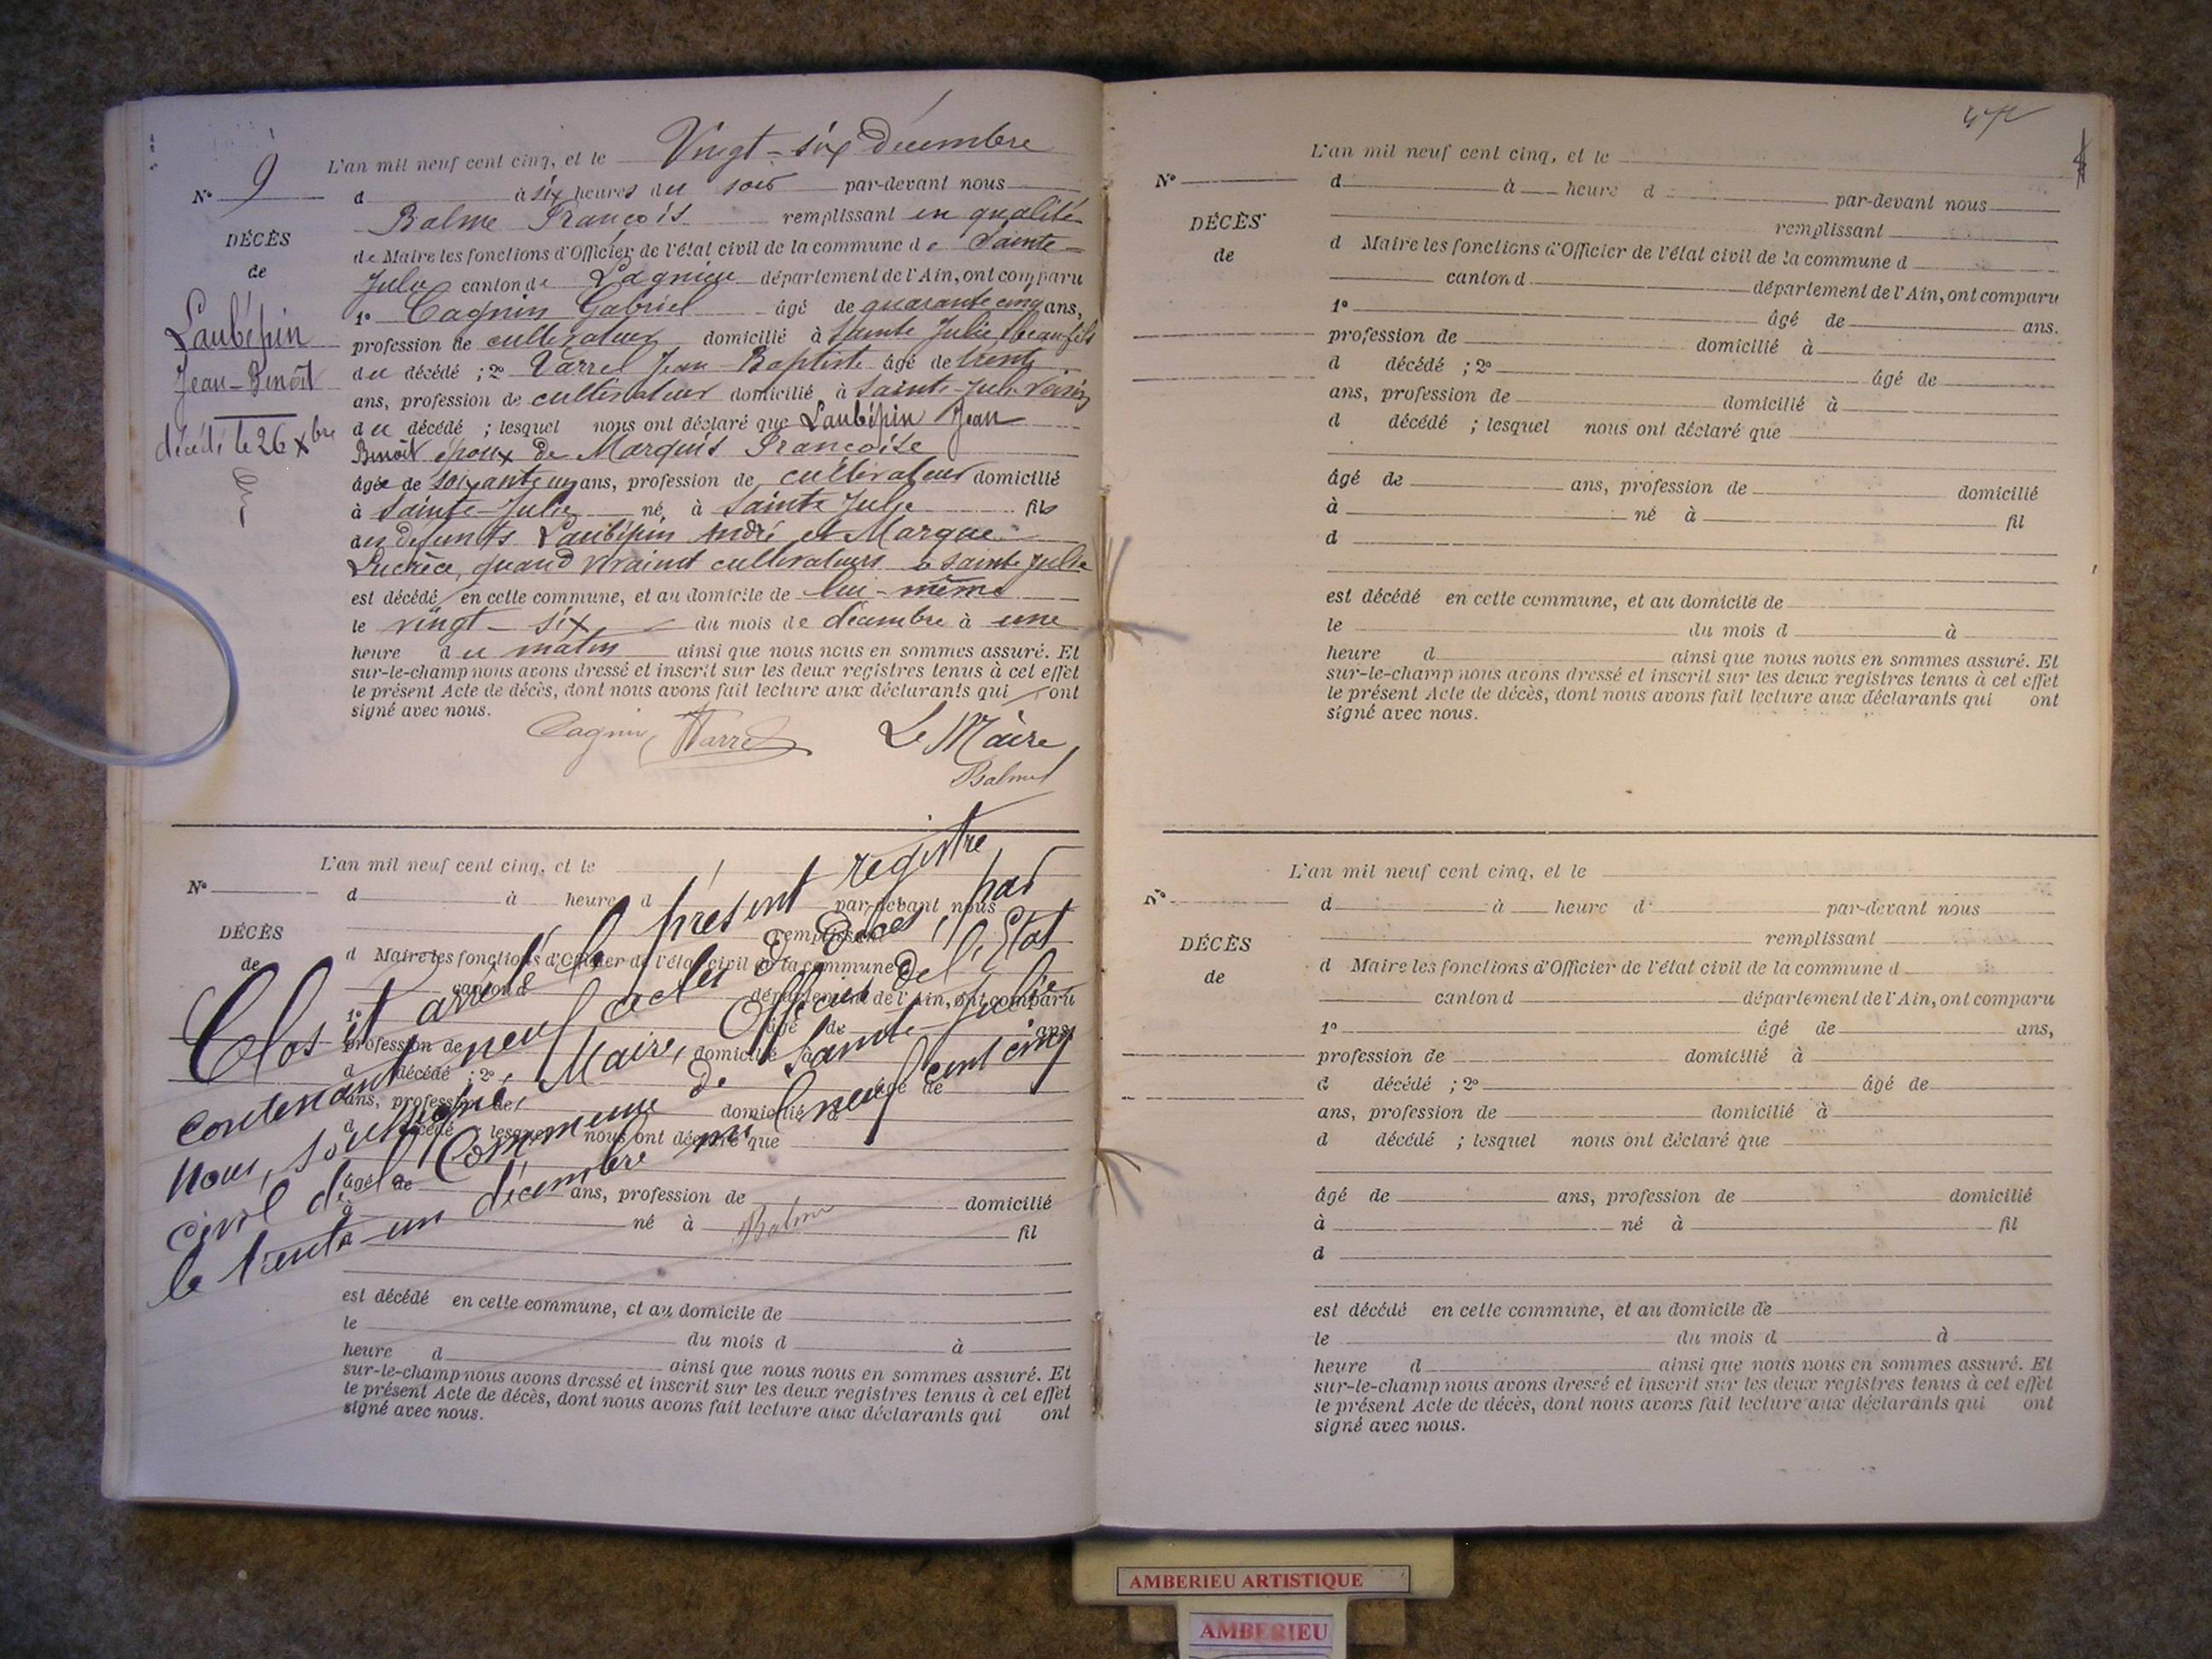 L'an mil neuf cent cinq, et le Vingt-six Décembre
N° 9
d à six heures du soir par-devant nous
Balme François remplissant en qualité
DÉCÈS
de Maire les fonctions d'Officier de l'état civil de la commune de Sainte-
de
Julie canton de Lagnieu département de l'Ain, ont comparu
1° Cagnin Gabriel âgé de quarante cinq ans,
Laubépin
profession de cultivateur domicilié à Sainte Julie beau-fils
Jean-Benoit
du décédé ; 2° Varrel Jean-Baptiste âgé de trente
ans, profession de cultivateur domicilié à Sainte-Julie voisin
décédé le 26 Xbre
du décédé ; lesquel nous ont déclaré que Laubépin Jean
Benoit époux de Marquis Françoise
âgé de soixante un ans, profession de cultivateur domicilié
à Sainte-Julie né à Sainte Julie fils
des defunts Laubépin André et Marque
Lucrèce, quand vivaient cultivateurs à Sainte Julie
est décédé en cette commune, et au domicile de lui-même
le vingt-six du mois de décembre à une
heure du matin ainsi que nous nous en sommes assuré. Et
sur-le-champ nous avons dressé et inscrit sur les deux registres tenus à cet effet
le présent Acte de décès, dont nous avons fait lecture aux déclarants qui ont
signé avec nous.
Cagnin Varrel Le Maire
Balme
L'an mil neuf cent cinq, et le
N°
d à heure d par-devant nous
remplissant
DÉCÈS
d Maire les fonctions d'Officier de l'état civil de la commune d
de
canton d département de l'Ain, ont comparu
1° âgé de ans,
profession de domicilié à
d décédé ; 2° âgé de
ans, profession de domicilié à
d décédé ; lesquel nous ont déclaré que
âgé de ans, profession de domicilié
à né à fil
est décédé en cette commune, et au domicile de
le du mois d à
heure d ainsi que nous nous en sommes assuré. Et
sur-le-champ nous avons dressé et inscrit sur les deux registres tenus à cet effet
le présent Acte de décès, dont nous avons fait lecture aux déclarants qui ont
signé avec nous.
Clos et arrêté le présent registre
contenant neuf actes de Décès, par
nous, soussigné, Maire, Officier de l'Etat
civil de la Commune de Sainte-Julie
le trente-un décembre mil neuf cent cinq
Balme
L'an mil neuf cent cinq, et le
N°
d à heure d par-devant nous
remplissant
DÉCÈS
d Maire les fonctions d'Officier de l'état civil de la commune d
de
canton d département de l'Ain, ont comparu
1° âgé de ans.
profession de domicilié à
d décédé ; 2° âgé de
ans, profession de domicilié à
d décédé ; lesquel nous ont déclaré que
âgé de ans, profession de domicilié
à né à fil
d
est décédé en cette commune, et au domicile de
le du mois d à
heure d ainsi que nous nous en sommes assuré. Et
sur-le-champ nous avons dressé et inscrit sur les deux registres tenus à cet effet
le présent Acte de décès, dont nous avons fait lecture aux déclarants qui ont
signé avec nous.
L'an mil neuf cent cinq, et le
N°
d à heure d par-devant nous
remplissant
DÉCÈS
d Maire les fonctions d'Officier de l'état civil de la commune d
de
canton d département de l'Ain, ont comparu
1° âgé de ans,
profession de domicilié à
d décédé ; 2° âgé de
ans, profession de domicilié à
d décédé ; lesquel nous ont déclaré que
âgé de ans, profession de domicilié
à né à fil
d
est décédé en cette commune, et au domicile de
le du mois d à
heure d ainsi que nous nous en sommes assuré. Et
sur-le-champ nous avons dressé et inscrit sur les deux registres tenus à cet effet
le présent Acte de décès, dont nous avons fait lecture aux déclarants qui ont
signé avec nous.
AMBERIEU ARTISTIQUE
AMBERIEU